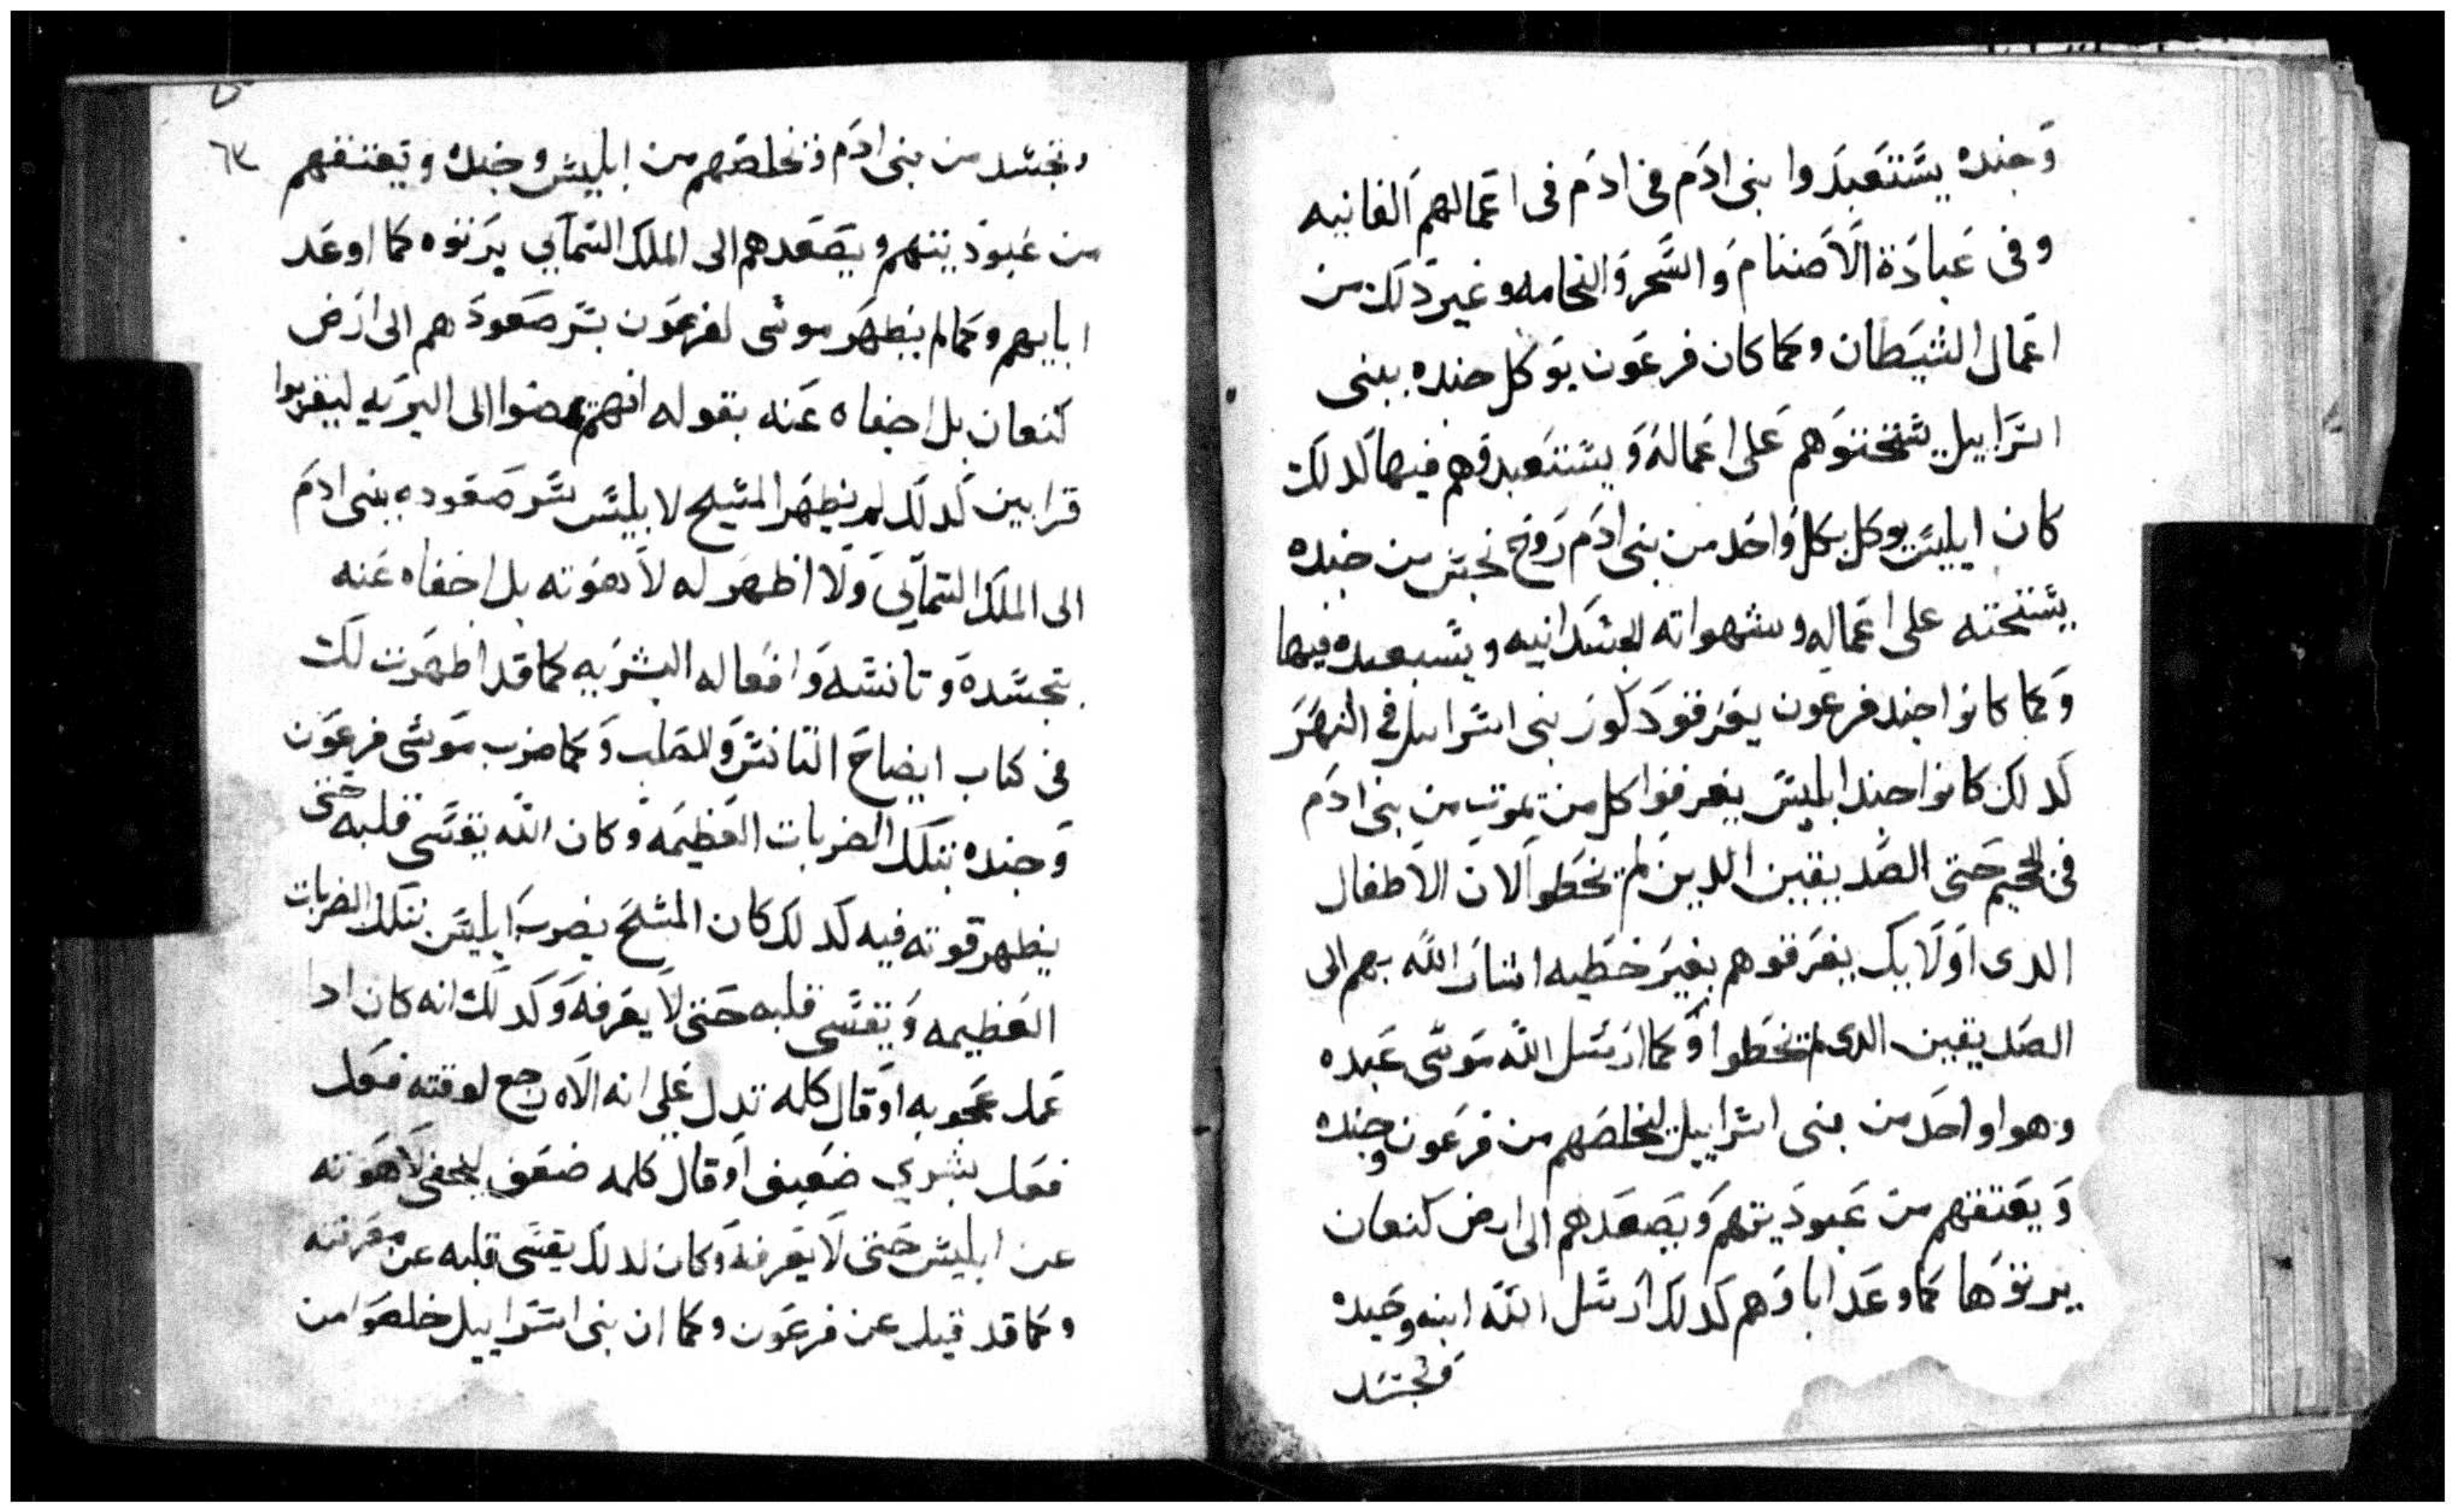 وجنده يستعبدوا بنى ادم فى ادم فى اعمالهم الفانيه
وفى عبادة الاصنام والسحر والنجامه وغير دلك من
اعمال الشيطان وكما كان فرعون يوكل جنده ببنى
اسراييل يستحتوهم على اعماله ويستعبدوهم فيها كدلك
كان ابليس يوكل بكل واحد من بنى ادم روح نجس من جنده
يستحته على اعماله وشهواته الجسدانيه ويستعبده فيها
وكما كانوا جند فرعون يغرقو دكور بنى اسراييل فى النهر
كدلك كانوا جند ابليس يغرقوا كل من يموت من بنى ادم
فى الجحيم حتى الصديقين الدين لم يخطوا لان الاطفال
الدى اولايك يغرقوهم بغير خطيه اشار الله بهم الى
الصديقين الدى لم يخطوا وكما ارسل الله موسى عبده
وهو واحد من بنى اسراييل ليخلصهم من فرعون وجنده
ويعتقهم من عبوديتهم ويصعدهم الى ارض كنعان
يرتوها كما وعد اباوهم كدلك ارسل الله ابنه وحيده
وتجسد
وتجسد من بنى ادم فخلصهم من ابليس وجنده ويعتقهم
من عبوديتهم ويصعدهم الى الملك السمايي يرتوه كما اوعد
ابايهم وكما لم يظهر موسى لفرعون بسر صعودهم الى ارض
كنعان بل اخفاه عنه بقوله انهم يمضوا الى البريه ليقربوا
قرابين كدلك لم يظهر المسيح لابليس سر صعوده ببنى ادم
الى الملك السمايي ولا اظهر له لاهوته بل اخفاه عنه
بتجسده وتانسه وافعاله البشريه كما قد اظهرت لك
فى كتاب ايضاح التانس والصلب وكما ضرب موسى فرعون
وجنده بتلك الضربات العظيمه وكان الله يقسى قلبه حتى
يظهر قوته فيه كدلك كان المسيح يضرب ابليس بتلك الضربات
العظيمه ويقسى قلبه حتى لا يعرفه وكدلك انه كان ادا
عمل عجوبه او قال كلمه تدل على انه الاه رجع لوقته فعل
فعل بشري ضعيف او قال كلمه ضعف ليخفى لاهوته
عن ابليس حتى لا يعرفه وكان لدلك يقسى قلبه عن معرفته
وكما قد قيل عن فرعون وكما ان بنى اسراييل خلصوا من